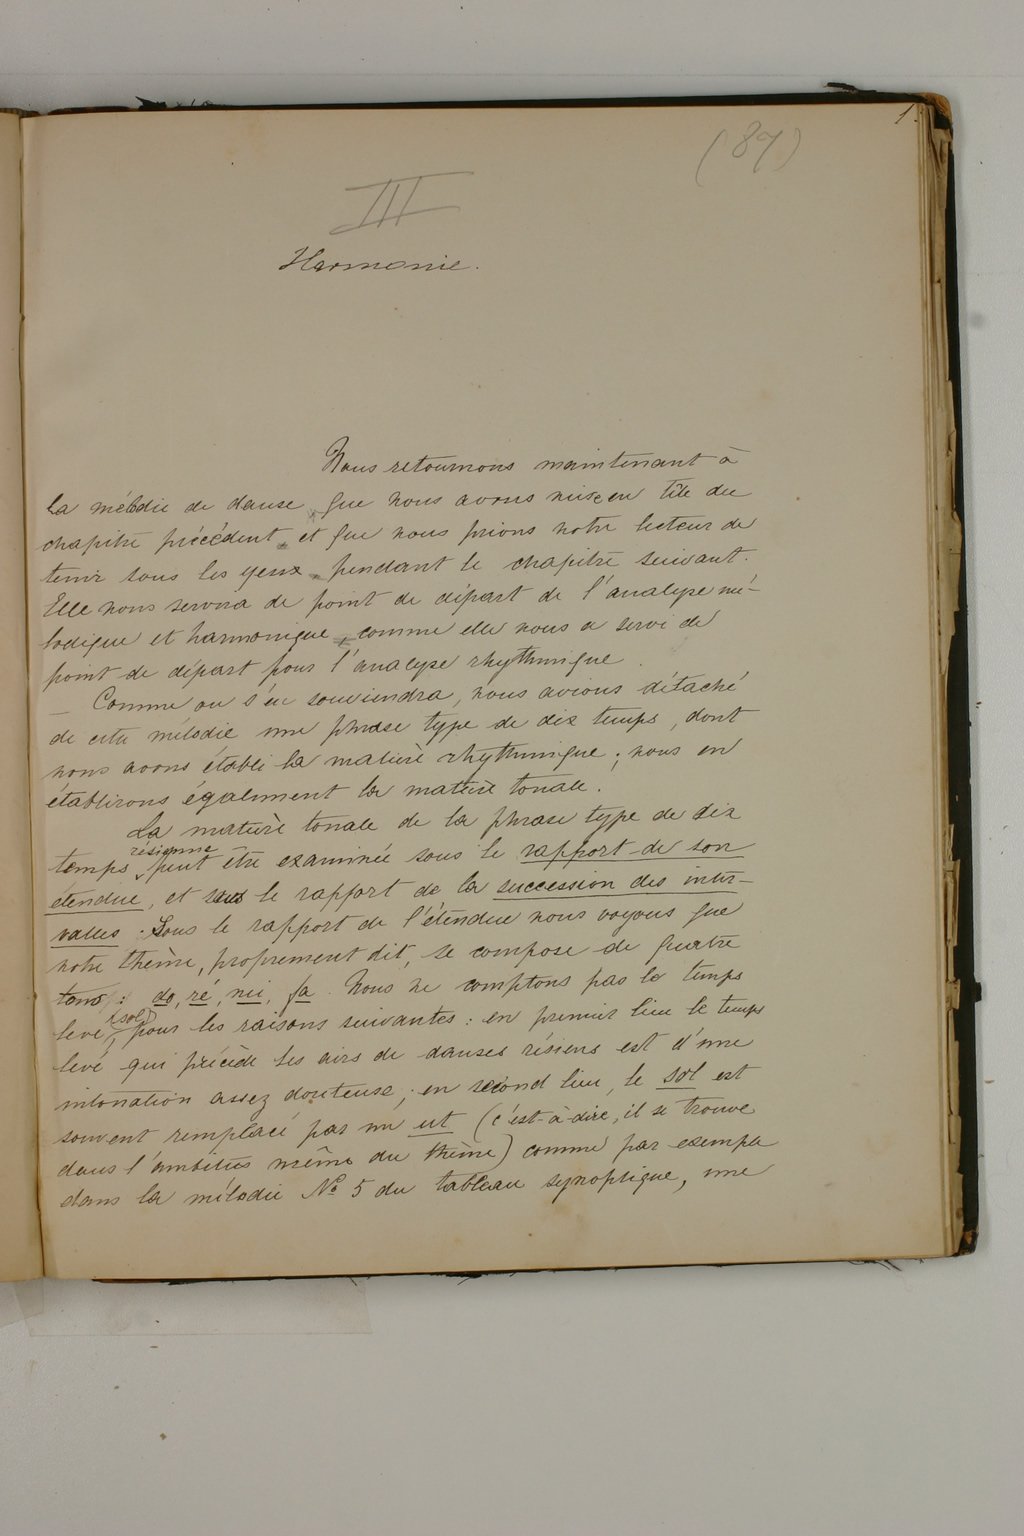 1.
(87)
III
Harmonie.
Nous retournons maintenant à
la mélodie de danse que nous avons mise en tête du
chapitre précédent et que nous prions notre lecteur de
tenir sous les yeux pendant le chapitre suivant.
Elle nous servira de point de départ de l'analyse mé-
lodique et harmonique, comme elle nous a servi de
point de départ pour l'analyse rhythmique.
— Comme on s'en souviendra, nous avions détaché
de cette mélodie une phrase type de dix temps, dont
nous avons établi la matière rhythmique; nous en
établirons également la matière tonale.
La matière tonale de la phrase type de dix
résienne
temps peut être examinée sous le rapport de son
étendue, et sous le rapport de la succession des inter-
valles. Sous le rapport de l'étendue nous voyons que
notre thème, proprement dit, se compose de quatre
tons: do, ré, mi, fa. Nous ne comptons pas le temps
(sol)
levé, pour les raisons suivantes: en premier lieu le temps
levé qui précède les airs de danses résiens est d'une
intonation assez douteuse; en second lieu, le sol est
souvent remplacé par un ut (c'est-à-dire, il se trouve
dans l'ambitus même du thème) comme par exemple
dans la mélodie No 5 du tableau synoptique, une